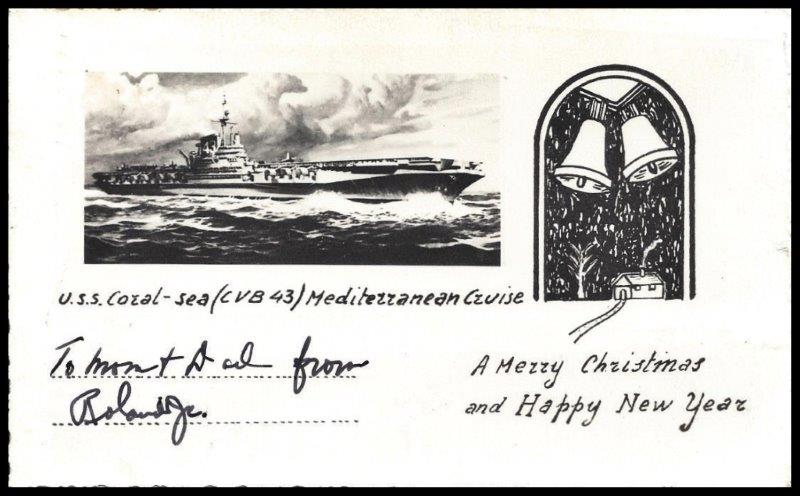 U.S.S. Coral-sea (CVB 43) Mediterranean Cruise
To Mom & Dad from
Roland Jr.
A Merry Christmas
and Happy New Year